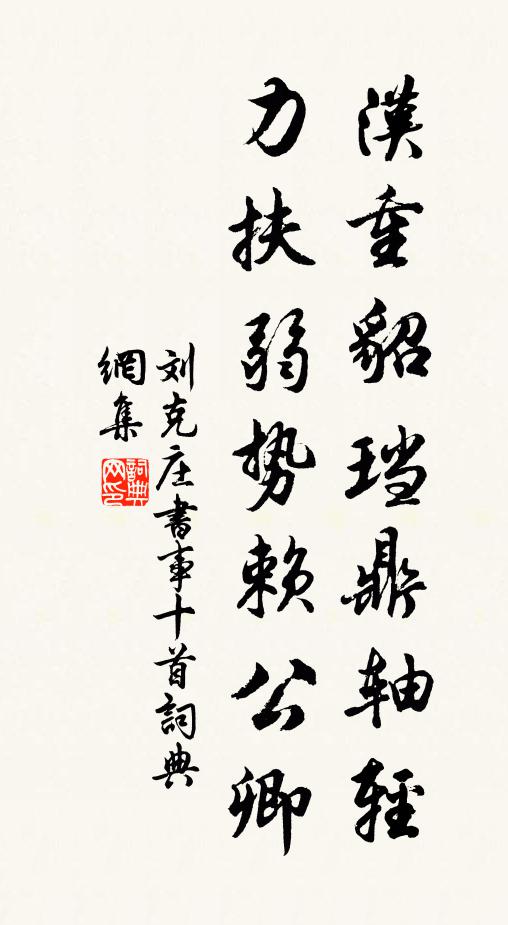 漢重貂珰鼎軸輕
力扶弱势賴公卿
刘克庄書事十首詞典
網集
詞典网印